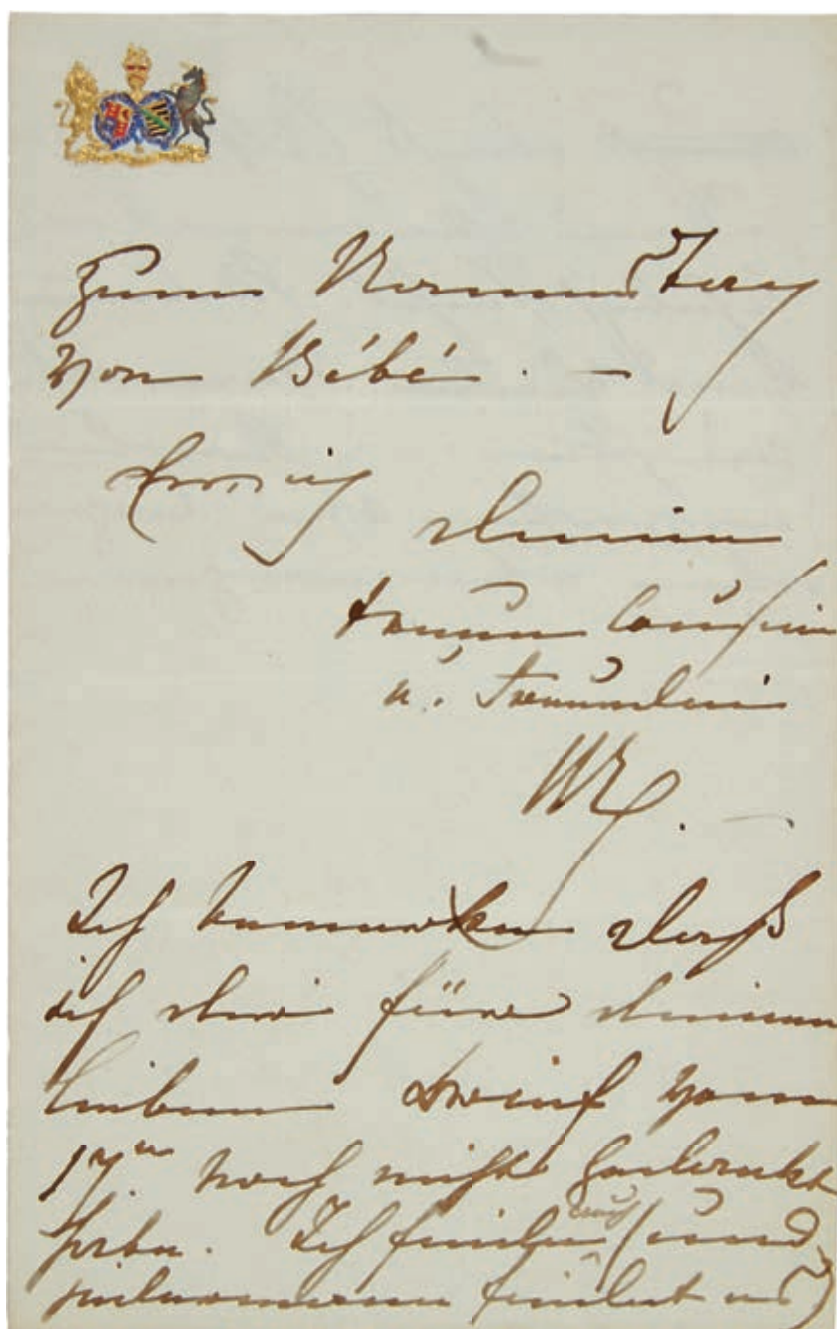 zum Namens Tag
von Bébé. —
Ewig
Deine
treue Cousine
u. Freundin
Ich bemerke daß
ich dir für deinen
lieben Brief vom
17n noch nicht gedankt
habe. Ich finde auch (und
jedermann findet es)